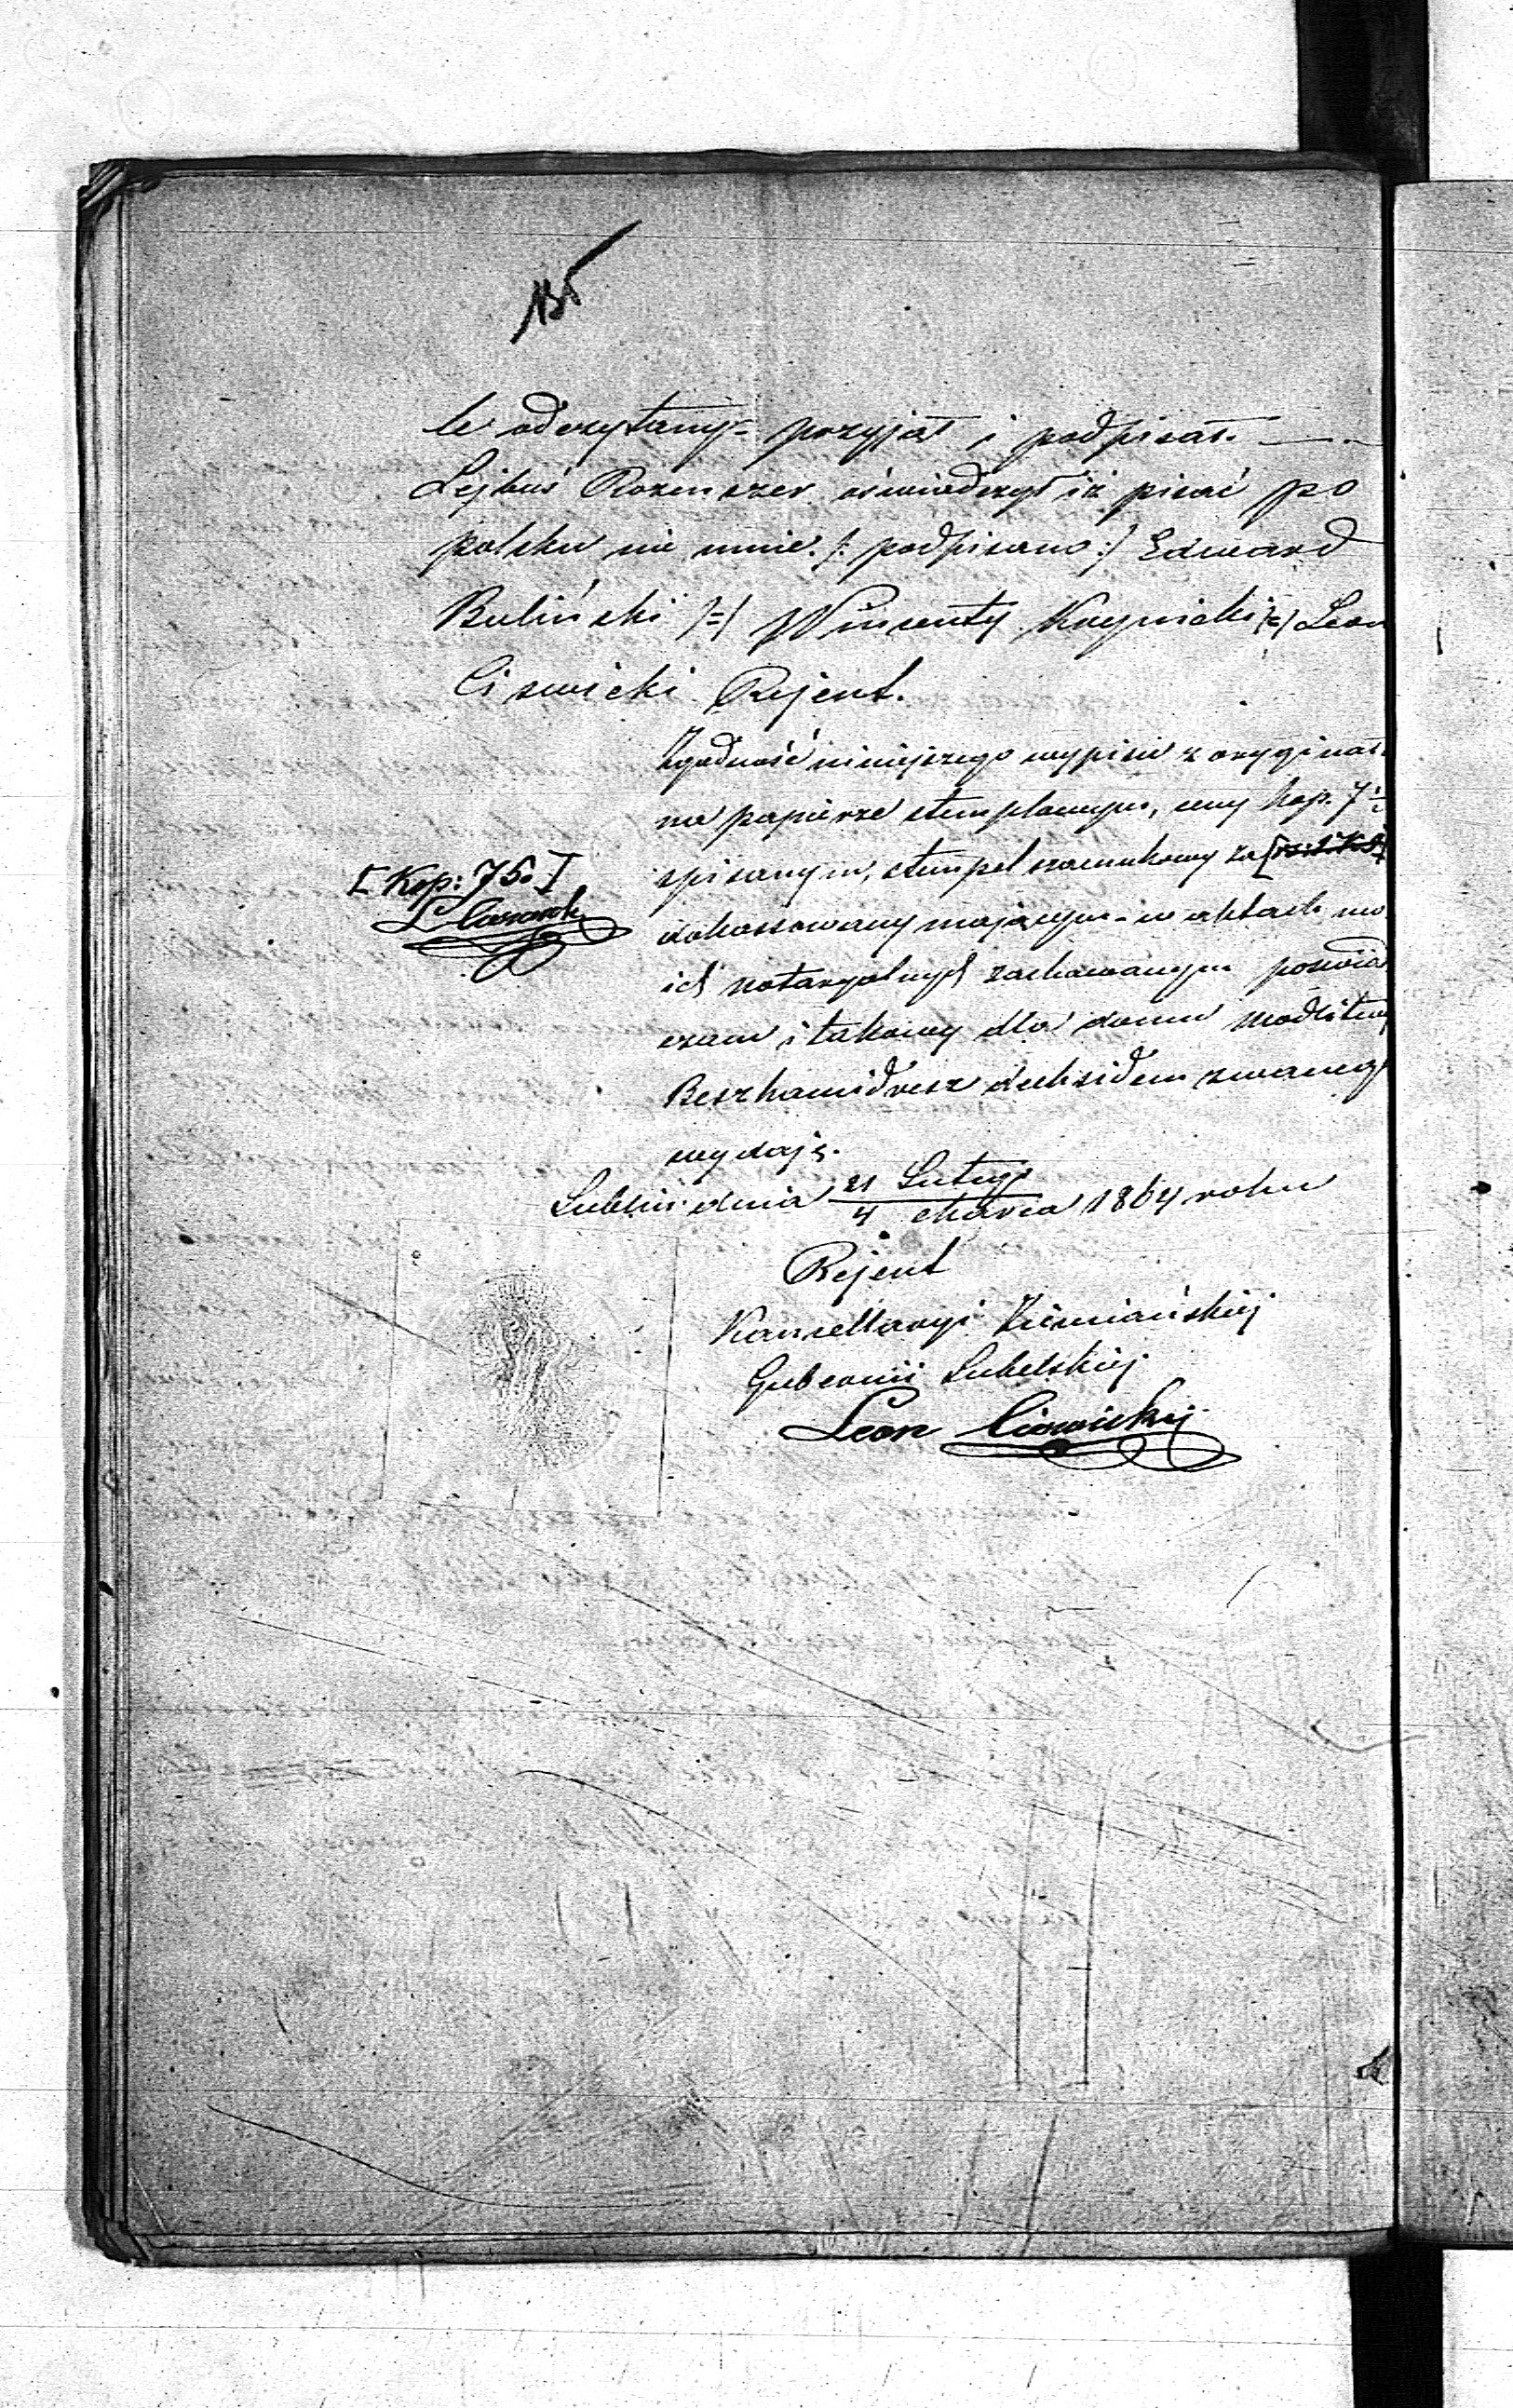 135
le odczytany przyjął i podpisał. —
Lejbuś Rozenszer oświadczył iż pisać po
polsku nie umie. /: podpisano :/ Edward
Buliński /=/ Wincenty Krynicki /=/ Leon
Ciświcki Rejent.
Zgodność niniejszego wypisu z oryginał.
na papierze stemplowym, ceny kop. 7½
spisanym, stempel szacunkowy za
[Kop: 75.]
dokassowany mającym w aktach mo
ich notaryalnych zachowanym poświad
czam i takowy dla domu modlitwy
Beszhamidresz zwanego
wydaję.
Lublin dnia 21 Lutego / 4 Marca 1864 roku
Rejent
Kancellaryi Ziemiańskiej
Gubernii Lubelskiej
Leon